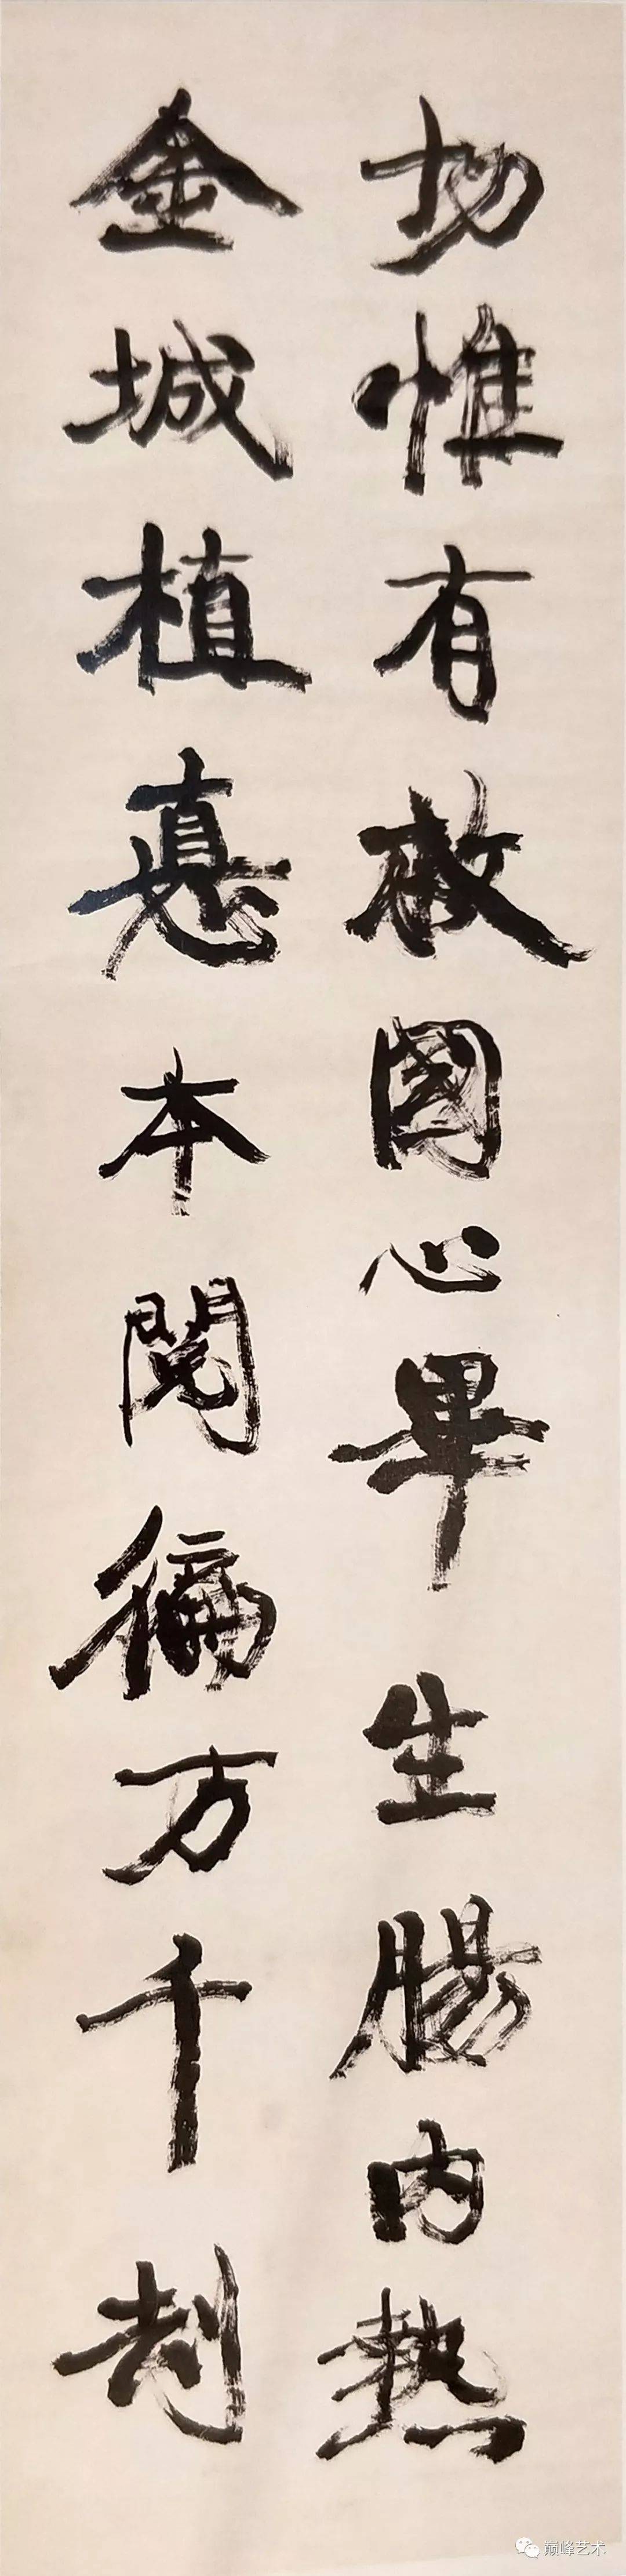 切惟有救國心畢生腸內熱
金城植惪本閱徧万千刦
巅峰艺术